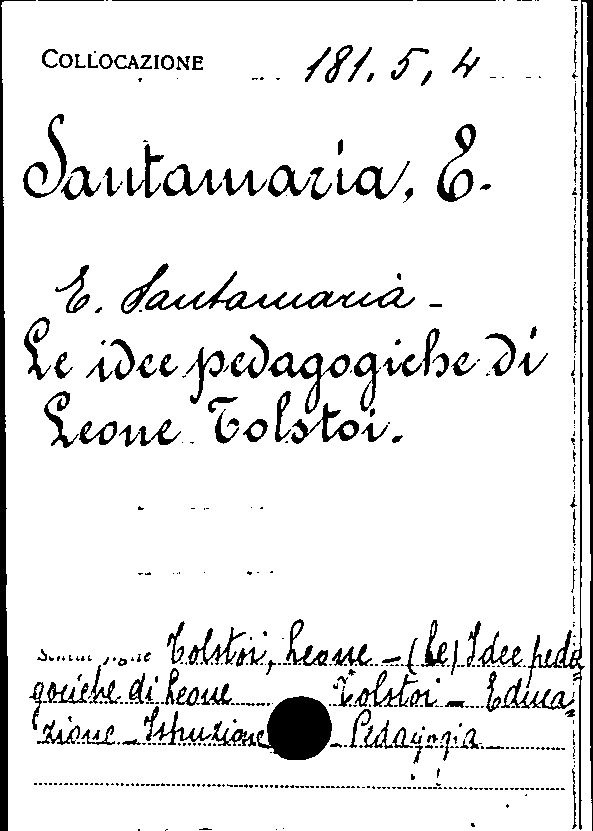 COLLOCAZIONE 181.5,4
Santamaria, E.
E. Santamaria -
Le idee pedagogiche di
Leone Tolstoi.
Tolstoi, Leone - (Le) Idee peda=
gogiche di Leone Tolstoi - Educa=
zione - Istruzione - Pedagogia